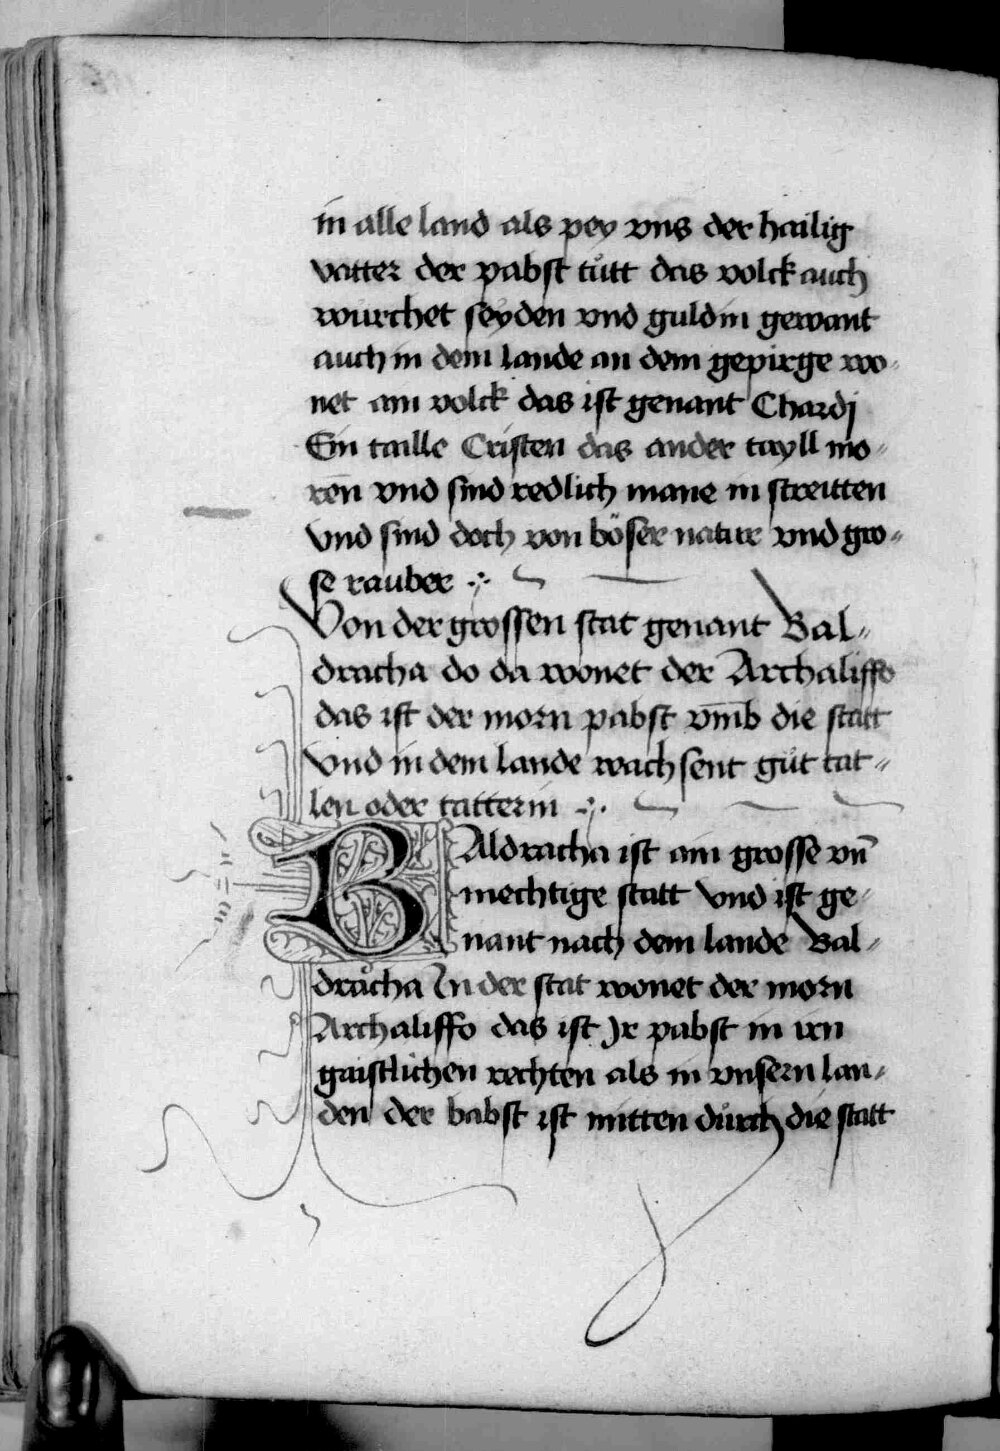 in alle land als pey vns der hailig
vatter der pabst tůtt das volck auch
wurchet seyden vnd guldin gewant
auch in dem lande an dem gepirge wo-
net ain volck das ist genant Chardj
Ein taille Cristen das ander tayll mo-
ren vnd sind redlich mane in streitten
vnd sind doch von böser natur vnd gro-
se rauber
Von der grossen stat genant Bal-
dracha do da wonet der Archaliffo
das ist der morn pabst vm̄b die statt
vnd in dem lande wachsent gůt tat-
len oder tatterin
BAldracha ist ain grosse vn̄
mechtige statt vnd ist ge-
nant nach dem lande Bal-
dråcha In der stat wonet der morn
Archaliffo das ist Jr pabst in irn
gaistlichen rechten als in vnsern lan-
den der babst ist mitten důrch die statt